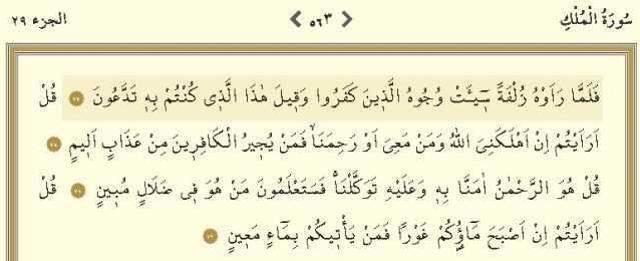 سُورَةُ الْمُلْكِ ٥٦٣ الجزء ٢٩
فَلَمَّا رَاَوْهُ زُلْفَةً سٖٓيـَٔتْ وُجُوهُ الَّذٖينَ كَفَرُوا وَقٖيلَ هٰذَا الَّذٖي كُنْتُمْ بِهٖ تَدَّعُونَ ٢٧ قُلْ
اَرَاَيْتُمْ اِنْ اَهْلَكَنِيَ اللّٰهُ وَمَنْ مَعِيَ اَوْ رَحِمَنَاۙ فَمَنْ يُجٖيرُ الْكَافِرٖينَ مِنْ عَذَابٍ اَلٖيمٍ ٢٨
قُلْ هُوَ الرَّحْمٰنُ اٰمَنَّا بِهٖ وَعَلَيْهِ تَوَكَّلْنَاۚ فَسَتَعْلَمُونَ مَنْ هُوَ فٖي ضَلَالٍ مُبٖينٍ ٢٩ قُلْ
اَرَاَيْتُمْ اِنْ اَصْبَحَ مَٓاؤُ۬كُمْ غَوْرًا فَمَنْ يَأْتٖيكُمْ بِمَٓاءٍ مَعٖينٍ ٣٠